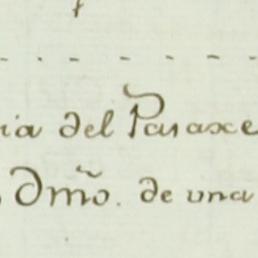 ia del Paraxe
Dm̃o. de una